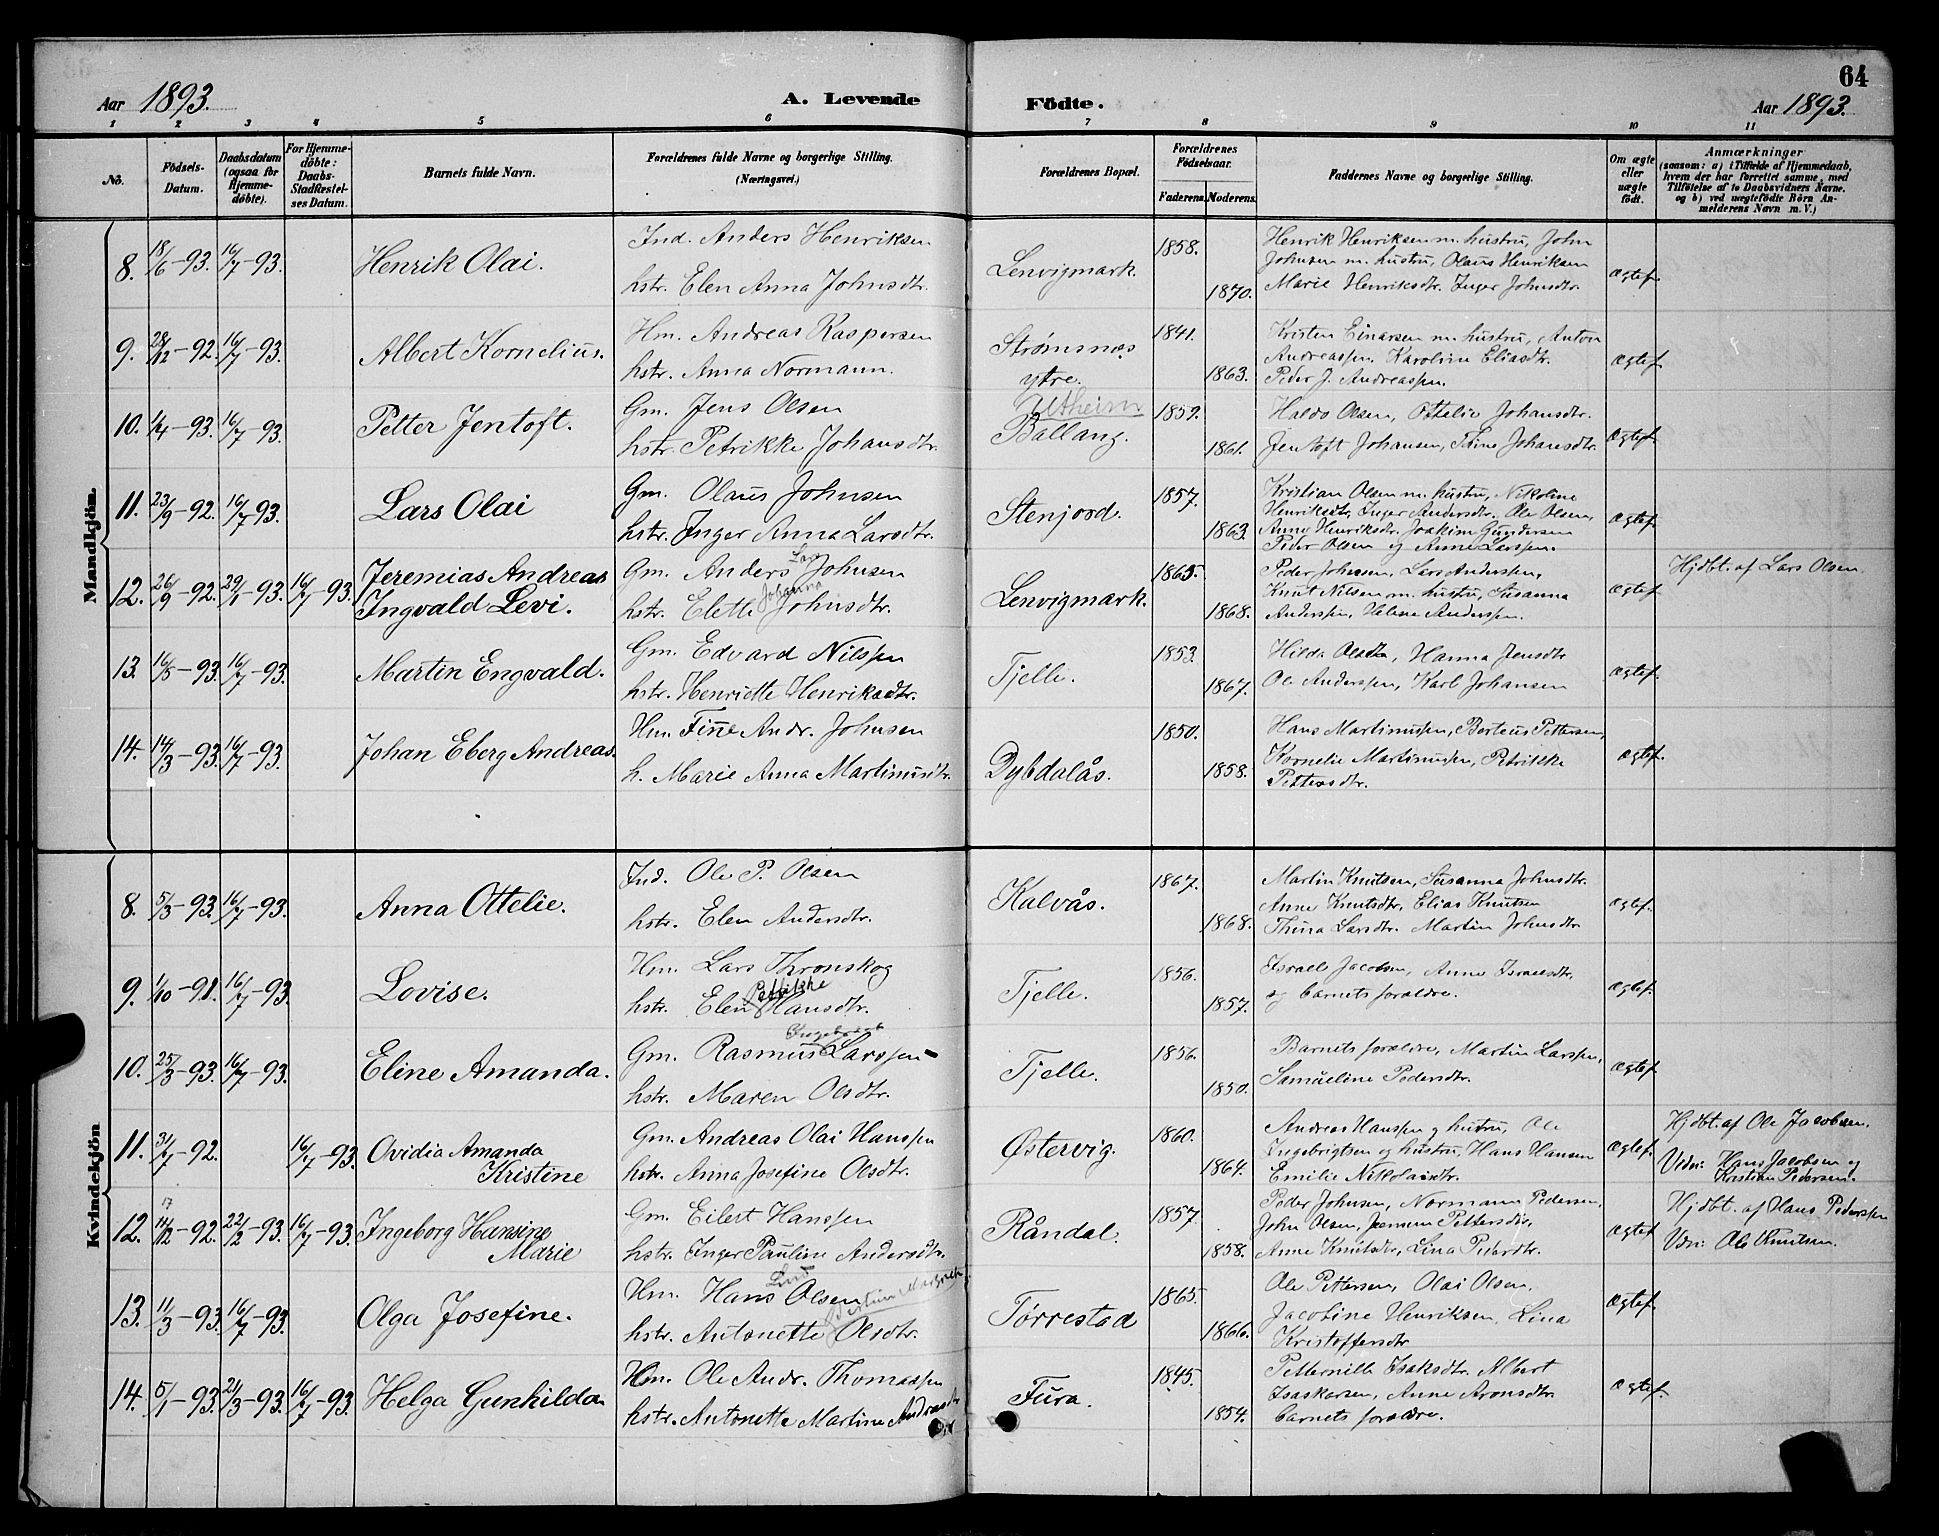 64
Aar 1893. A. Levende Födte. Aar 1893.
1 2 3 4 5 6 7 8 9 10 11
No.
Födsels-
Datum.
Daabsdatum
(ogsaa for
Hjemme-
döbte).
For Hjemme-
döbte:
Daabs-
Stadfæstel-
ses Datum.
Barnets fulde Navn.
Forældrenes fulde Navne og borgerlige Stilling.
(Næringsvei.)
Forældrenes Bopæl.
Forældrenes
Födselsaar.
Faderens. Moderens.
Faddernes Navne og borgerlige Stilling.
Om ægte
eller
uægte
födt.
Anmærkninger
(saasom: a) i Tilfælde af Hjemmedaab,
hvem der har forrettet samme, med
Tilföielse af to Daabsvidners Navne.
og b) ved uægtefödte Börn An-
melderens Navn m. V.)
Mandkjön.
8. 18/6-93. 16/7-93. Henrik Olai.
Ind. Anders Henriksen
hstr. Elen Anna Johnsdtr.
Lenvigmark.
1858.
1870.
Henrik Henriksen m. hustru, John
Johnsen m. hustru, Olaus Henriksen
Marie Henriksdtr. Inger Johnsdtr.
Ægtef.
9. 28/12-92. 16/7-93. Albert Kornelius.
Hm. Andreas Kaspersen
hstr. Anna Normann.
Strømsnæs
ytre.
1841.
1863.
Kristen Einarsen m. hustru, Anton
Andreassen, Karoline Eliasdtr.
Peder J. Andreassen.
Ægtef.
10. 1/4-93. 16/7-93. Petter Jentoft.
Gm. Jens Olsen
hstr. Petrikke Johansdtr.
Utheim
Ballang.
1859.
1861.
Haldo Olsen, Ottelie Johansdtr.
Jentoft Johansen, Trine Johansdtr.
Ægtef.
11. 23/9-92. 16/7-93. Lars Olai
Gm. Olaus Johnsen
hstr. Inger Anna Larsdtr.
Stenjord.
1857.
1863.
Kristian Olsen m. hustru, Nikoline
Henriksdtr, Inger Andersdtr. Ole Olsen,
Anne Henriksdtr. Joakim Gundersen
Peder Olsen og Anne Larssen.
Ægtef.
12. 26/9-92. 29/1-93. 16/7-93. Jeremias Andreas
Ingvald Levi.
Gm. Anders Johnsen
hstr. Elette Johanna Johnsdtr.
Lenvigmark.
1865.
1868.
Peder Johnsen, Lars Anderssen,
Knut Nilsen m. hustru, Susanna
Anderssen, Helene Anderssen.
Ægtef.
Hjdbt. af Lars Olsen
13. 16/5-93. 16/7-93. Martin Engvald.
Gm. Edvard Nilssen
hstr. Henriette Henriksdtr.
Tjelle.
1853.
1867.
Hilda Olsdtr, Hanna Jensdtr
Ole Anderssen, Karl Johansen
Ægtef.
14. 14/3-93. 16/7-93. Johan Eberg Andreas.
Hm. Fine Andr. Johnsen
h. Marie Anna Martinusdtr.
Dybdalås.
1850.
1858.
Hans Martinussen, Berteus Pettersen,
Kornelie Martinussen, Petrikke
Pettersdtr.
Ægtef.
Kvindekjön
8. 5/3-93. 16/7-93. Anna Ottelie.
Ind. Ole P. Olsen
hstr. Elen Andersdtr.
Kalvås.
1867.
1868.
Martin Knutsen, Susanna Johnsdtr.
Anne Knutsdtr, Elias Knutsen
Thina Larsdtr. Martin Johnsdtr
Ægtef.
9. 1/10-91. 16/7-93. Lovise.
Hm. Lars Thronskog
hstr. Elen Petrikke Hansdtr.
Tjelle.
1856.
1857.
Israel Jacobsen, Anne Israelsdtr.
og barnets forældre.
Ægtef.
10. 25/3-93. 16/7-93. Eline Amanda.
Gm. Rasmus Larssen
hstr. Maren Olsdtr.
Tjelle.
1856.
1850.
Barnets forældre, Martin Larssen,
Samueline Pedersdtr.
Ægtef.
11. 31/7-92. 16/7-93. Ovidia Amanda
Kristine
Gm. Andreas Olai Hanssen
hstr. Anna Josefine Olsdtr.
Østervig.
1860.
1864.
Andreas Hanssen og hustru, Ole
Ingebrigtsen og hustru, Hans Hansen
Emilie Nikolaisdtr.
Ægtef.
Hjdbt. af Ole Jacobsen.
Vidn: Hans Jacobsen og
Kristian Pedersen.
12. 11/12-92. 22/2-93. 16/7-93. Ingeborg Hansine
Marie
Gm. Eilert Hanssen
hstr. Inger Pauline Andersdtr.
Råndal.
1857.
1858.
Peder Johnsen, Normann Pedersen,
John Olsen, Pettersdtr,
Anne Knutsdtr, Lina Pedersdtr.
Ægtef
Hjdbt. af Hans Pederssen
Vdn: Ole Knutsen.
13. 11/3-93. 16/7-93. Olga Josefine.
Hm. Hans Olsen
hstr. Antonette Olsdtr.
Tørrestad
1865.
1866.
Ole Pettersen, Olai Olsen.
Jacobine Henriksen, Lina
Kristoffersdtr
Ægtef.
14. 5/1-93. 21/3-93. 16/7-93. Helga Gunhilda
Hm. Ole Andr. Thomassen
hstr. Antonette Martine Andreasdtr
Fura.
1845.
1854.
Petternille Isaksdtr. Albert
Isaskarsen, Anne Aronsdtr.
barnets forældre.
Ægtef.